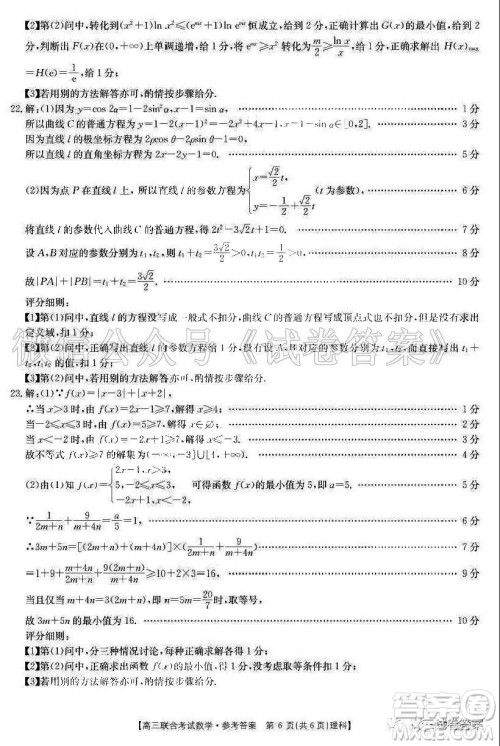 【2】第(2)问中,转化到(x²+1)ln x²≤(eᵃˣ+1)ln eᵃˣ恒成立,给到 2 分,正确求出 G(x)的最小值,给到 2
分,判断出 F(x)在(0,+∞)上单调递增,给1分;转化为 eᵃˣ≥x² 转化为 a/2≥ln x/x,给1分,正确求出 H(x)max
=H(e)=1/e,给1分;
【3】若用别的方法解答亦可,酌情按步骤给分.
22.解:(1)因为 y=cos 2α=1-2sin²α,x-1=sin α, 1分
所以曲线 C 的普通方程为 y=1-2(x-1)²=-2x²+4x-1,x∈[0,2]. 3分
因为直线 l 的极坐标方程为 2ρcos θ-2ρsin θ-1=0,
所以直线 l 的直角坐标方程为 2x-2y-1=0. 5分
(2)因为点 P 在直线 l 上,所以直线 l 的参数方程为{x=√2/2 t, y=-1/2+√2/2 t (t 为参数), 6分
将直线 l 的参数代入曲线 C 的普通方程,得 2t²-3√2t+1=0. 7分
设 A,B 对应的参数分别为 t₁,t₂,则 t₁+t₂=3√2/2>0,t₁t₂=1/2>0, 8分
故|PA|+|PB|=t₁+t₂=3√2/2. 10分
评分细则:
【1】第(1)问中,直线 l 的方程写成斜截式不扣分,曲线 C 的普通方程写成顶点式也不扣分,但没有求出
定义域,扣1分;
【2】第(2)问中,正确写出直线 l 的参数方程,给1分,没有说明 A,B 对应的参数,直接写出 t₁+
t₂ 的值,扣1分;
【3】若用别的方法解答亦可,酌情按步骤给分.
23.解:(1)∵f(x)=|x-3|+|x+2|,
∴当 x>3时,由 f(x)=2x-1≥7,解得 x≥4; 1分
当-2≤x≤3时,由 f(x)=5≥7,解得 x∈∅; 2分
当 x<-2时,由 f(x)=1-2x≥7,解得 x≤-3. 3分
故不等式 f(x)≥7 的解集为(-∞,-3]∪[4,+∞). 4分
(2)由(1)知 f(x)={2x-1,x>3, 5,-2≤x≤3, 1-2x,x<-2, 可得函数 f(x)的最小值为 5,即 a=5. 5分
∵1/(2m+n)+9/(m+4n)=a/5=1, 6分
∴3m+5n=[(2m+n)+(m+4n)]×(1/(2m+n)+9/(m+4n))
=1+9+(m+4n)/(2m+n)+9(2m+n)/(m+4n)≥10+2×3=16, 9分
当且仅当 m+4n=3(2m+n),即 n=5m=20/7 时,取等号,
故 3m+5n 的最小值为 16. 10分
评分细则:
【1】第(1)问中,分三种情况讨论,每种情况各给1分,最后结论给1分;
【2】第(2)问中,正确求出函数 f(x)的最小值,得到 a=5,给1分,没有说明取等条件,扣1分;
【3】若用别的方法解答亦可,酌情按步骤给分.
微信公众号《试卷答案》
【高三联合考试数学·参考答案 第 6 页(共 6 页)理科】